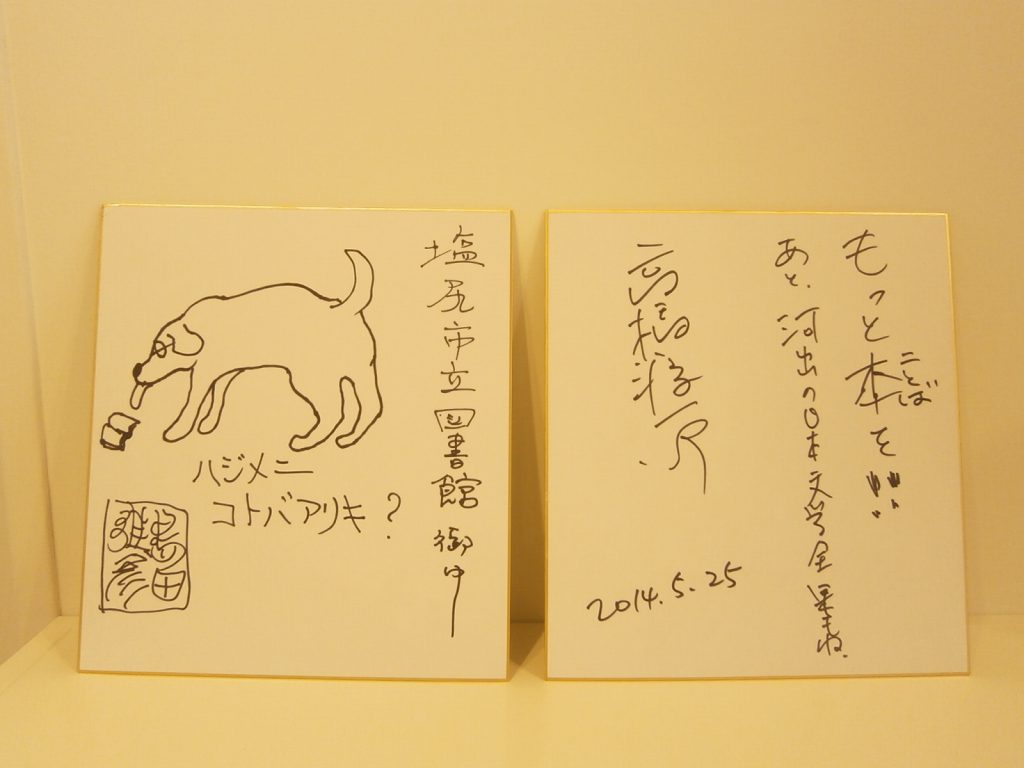 塩尻市立図書館 御中
ハジメニ
コトバアリキ?
島田
雅彦
もっと本を!!!
ことば
あと、河出の日本文学全集もね.
高橋源一郎
2014.5.25